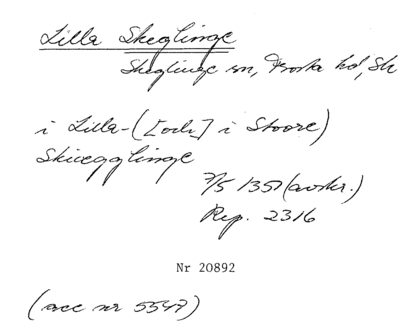 Lilla Skeglinge
Skeglinge sn, Frosta hd, Sk
i Lilla-([och] i Stoore)
Skiægglinge
7/5 1357 (avskr.)
Rep. 2316
Nr 20892
(acc nr 5547)